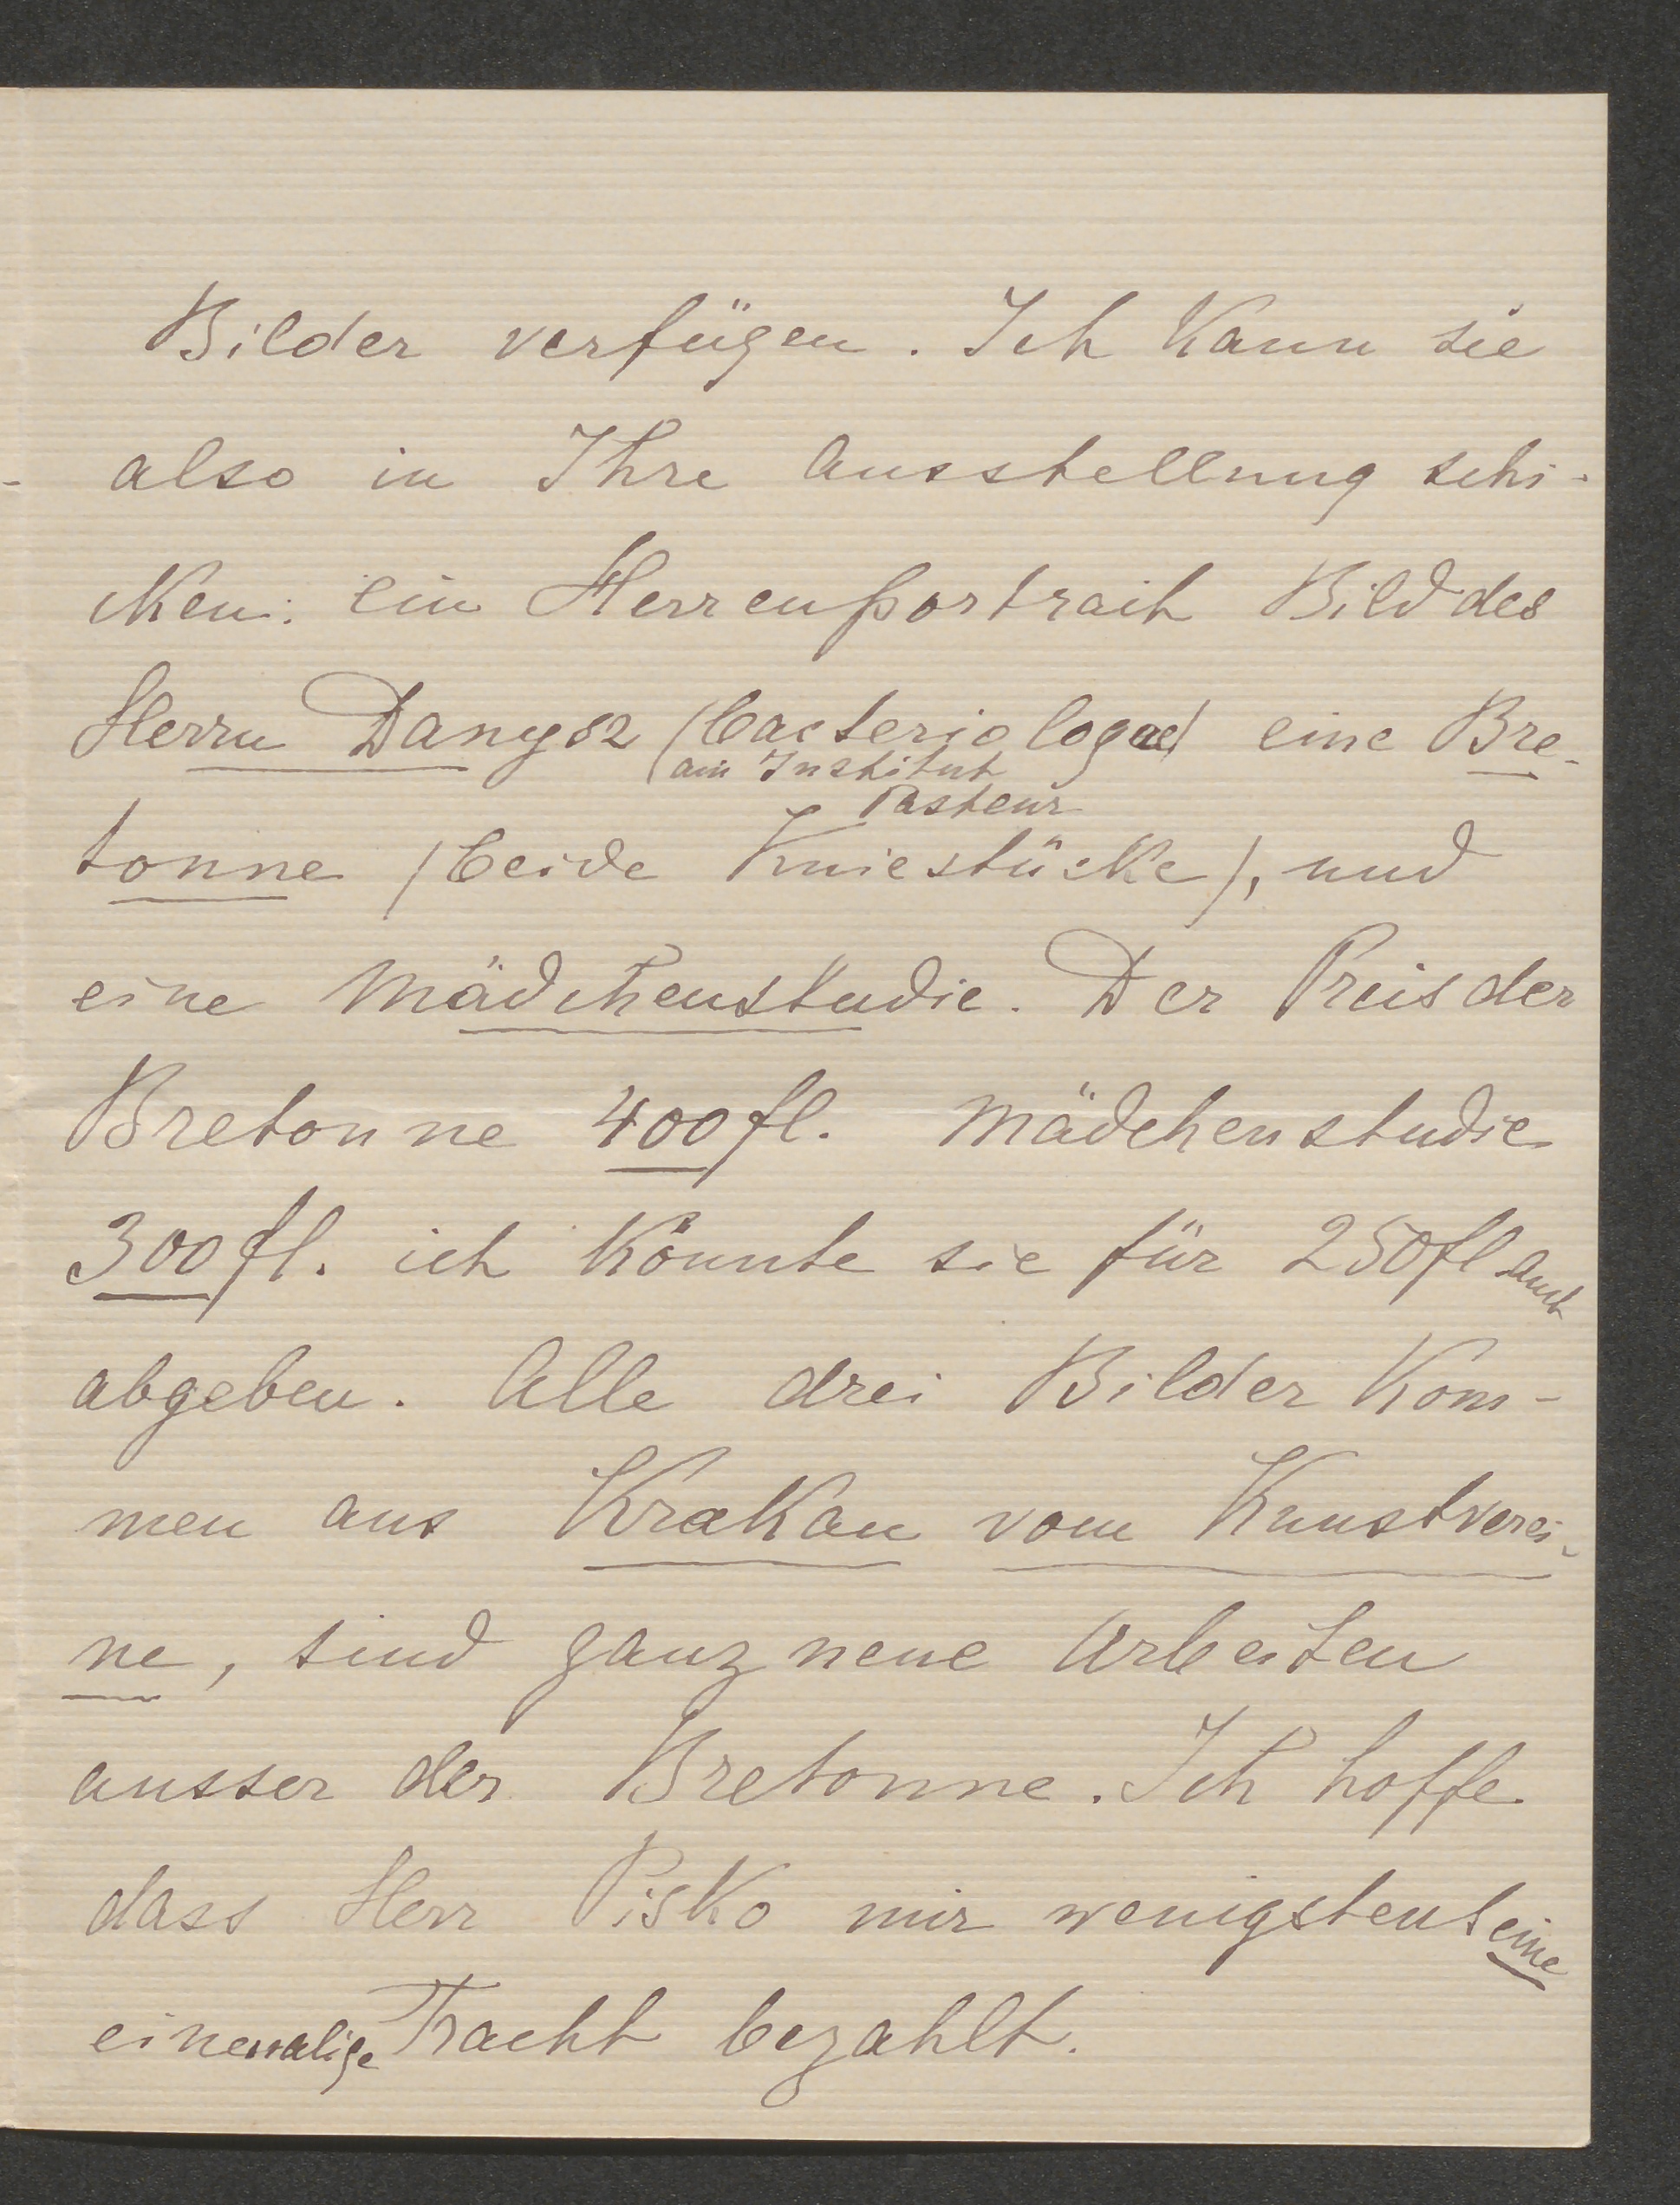 Bilder verfügen. Ich kann sie
also in Ihre Ausstellung schi-
cken: ein Herrenportrait Bild des
Herrn Danysz (bacteriologue) eine Bre-
(am Institut
Pasteur
tonne (beide Kniestücke), und
eine Mädchenstudie. Der Preis der
Bretonne 400 fl. Mädchenstudie
300 fl. ich könnte sie für 250 fl auch
abgeben. Alle drei Bilder kom-
men aus Krakau vom Kunstverei-
ne, sind ganz neue Arbeiten
ausser der Bretonne. Ich hoffe
dass Herr Pisko mir wenigstens eine
einemalige Fracht bezahlt.